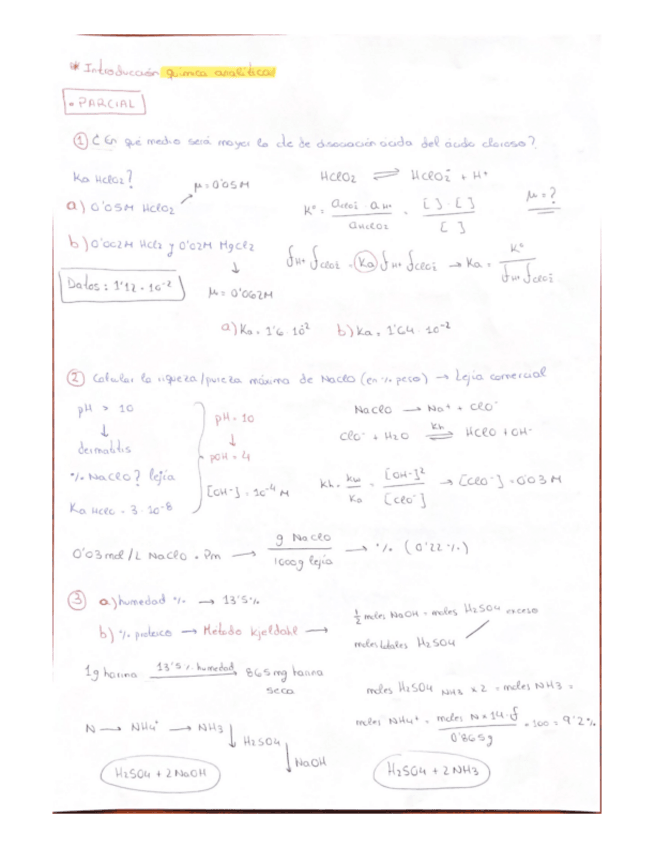 * Introducción química analítica
• PARCIAL
① ¿En qué medio será mayor la cte de disociación ácida del ácido cloroso?
Ka HClO2?
μ = 0'05M
HClO2 ⇌ HClO2⁻ + H⁺
a) 0'05M HClO2
K° = aClO2⁻ aH⁺ / aHClO2 = [ ]·[ ] / [ ]
μ = ?
b) 0'002M HCl2 y 0'02M MgCl2
↓
μ = 0'062M
fH⁺ fClO2⁻ = Ka fH⁺ fClO2⁻ → Ka = K° / fH⁺ fClO2⁻
Datos: 1'12·10⁻²
a) Ka = 1'6·10² b) Ka = 1'64·10⁻²
② Calcular la riqueza/pureza máxima de NaClO (en % peso) → Lejía comercial
pH > 10
↓
dermatitis
% NaClO? lejía
Ka HClO = 3·10⁻⁸
pH = 10
↓
pOH = 4
[OH⁻] = 10⁻⁴ M
NaClO → Na⁺ + ClO⁻
ClO⁻ + H2O ⇌ Kh HClO + OH⁻
Kh = Kw / Ka = [OH⁻]² / [ClO⁻] → [ClO⁻] = 0'03M
0'03 mol/L NaClO · Pm → g NaClO / 1000g lejía → % (0'22%)
③ a) humedad % → 13'5%
b) % proteico → Método Kjeldahl →
½ moles NaOH = moles H2SO4 exceso
moles totales H2SO4
1g harina 13'5% humedad → 865mg harina seca
moles H2SO4 NH3 x 2 = moles NH3 =
moles NH4⁺ = moles N x 14·f / 0'865g · 100 = 9'2%
N → NH4⁺ → NH3 ↓ H2SO4
↓ NaOH
H2SO4 + 2NaOH
H2SO4 + 2NH3